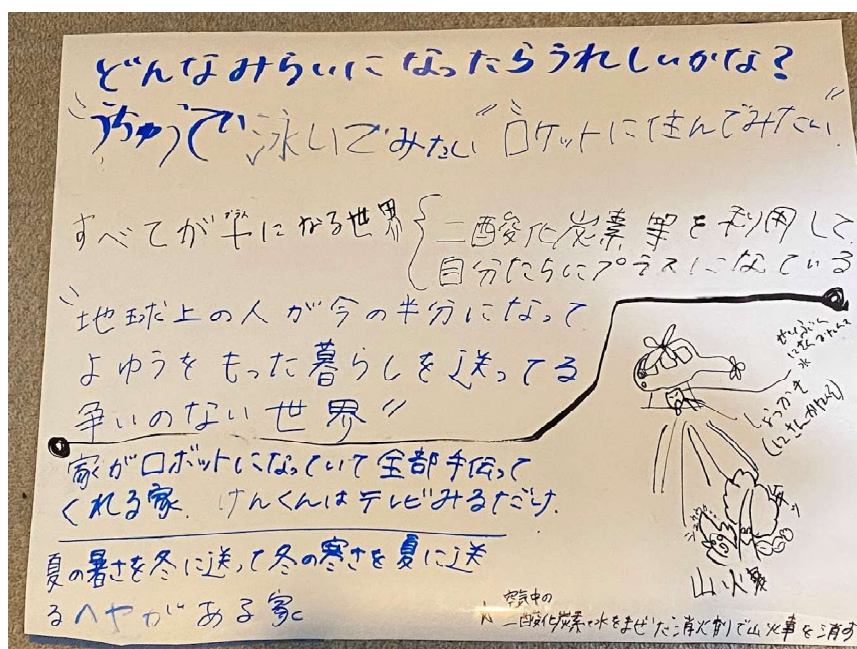 どんなみらいになったらうれしいかな?
"うちゅうで泳いでみたい" "ロケットに住んでみたい"
すべてが半になる世界
二酸化炭素等を利用して
自分たちにプラスになっている
"地球上の人が今の半分になって
よゆうをもった暮らしを送ってる
争いのない世界"
家がロボットになっていて全部手伝って
くれる家. けんくんはテレビみるだけ.
夏の暑さを冬に送って冬の寒さを夏に送
るへやがある家
水
しょうかき
(にさんかたんそ)
山火事
空気中の
二酸化炭素で水をまぜた消火剤で山火事を消す